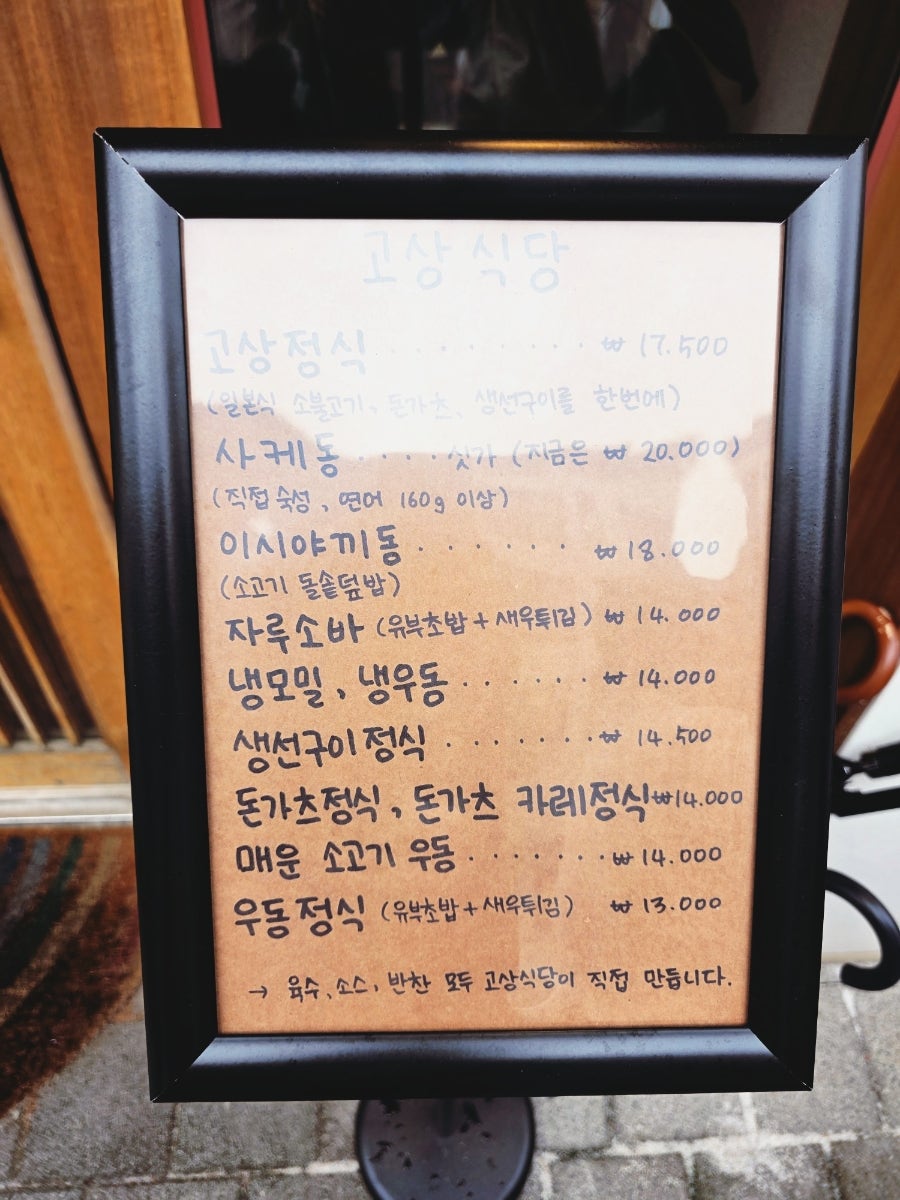 고상식당
고상정식 . . . . . . . . . ₩ 17.500
(일본식 소불고기, 돈가츠, 생선구이를 한번에)
사케동 . . . . 싯가 (지금은 ₩ 20.000)
(직접숙성, 연어 160g 이상)
이시야끼동 . . . . . . ₩ 18.000
(소고기 돌솥덮밥)
자루소바 (유부초밥 + 새우튀김) ₩ 14.000
냉모밀, 냉우동 . . . . . . ₩ 14.000
생선구이정식 . . . . . . . ₩ 14.500
돈가츠정식, 돈가츠 카레정식 ₩14.000
매운 소고기 우동 . . . . . . . ₩ 14.000
우동정식 (유부초밥 + 새우튀김) ₩ 13.000
→ 육수, 소스, 반찬 모두 고상식당이 직접 만듭니다.